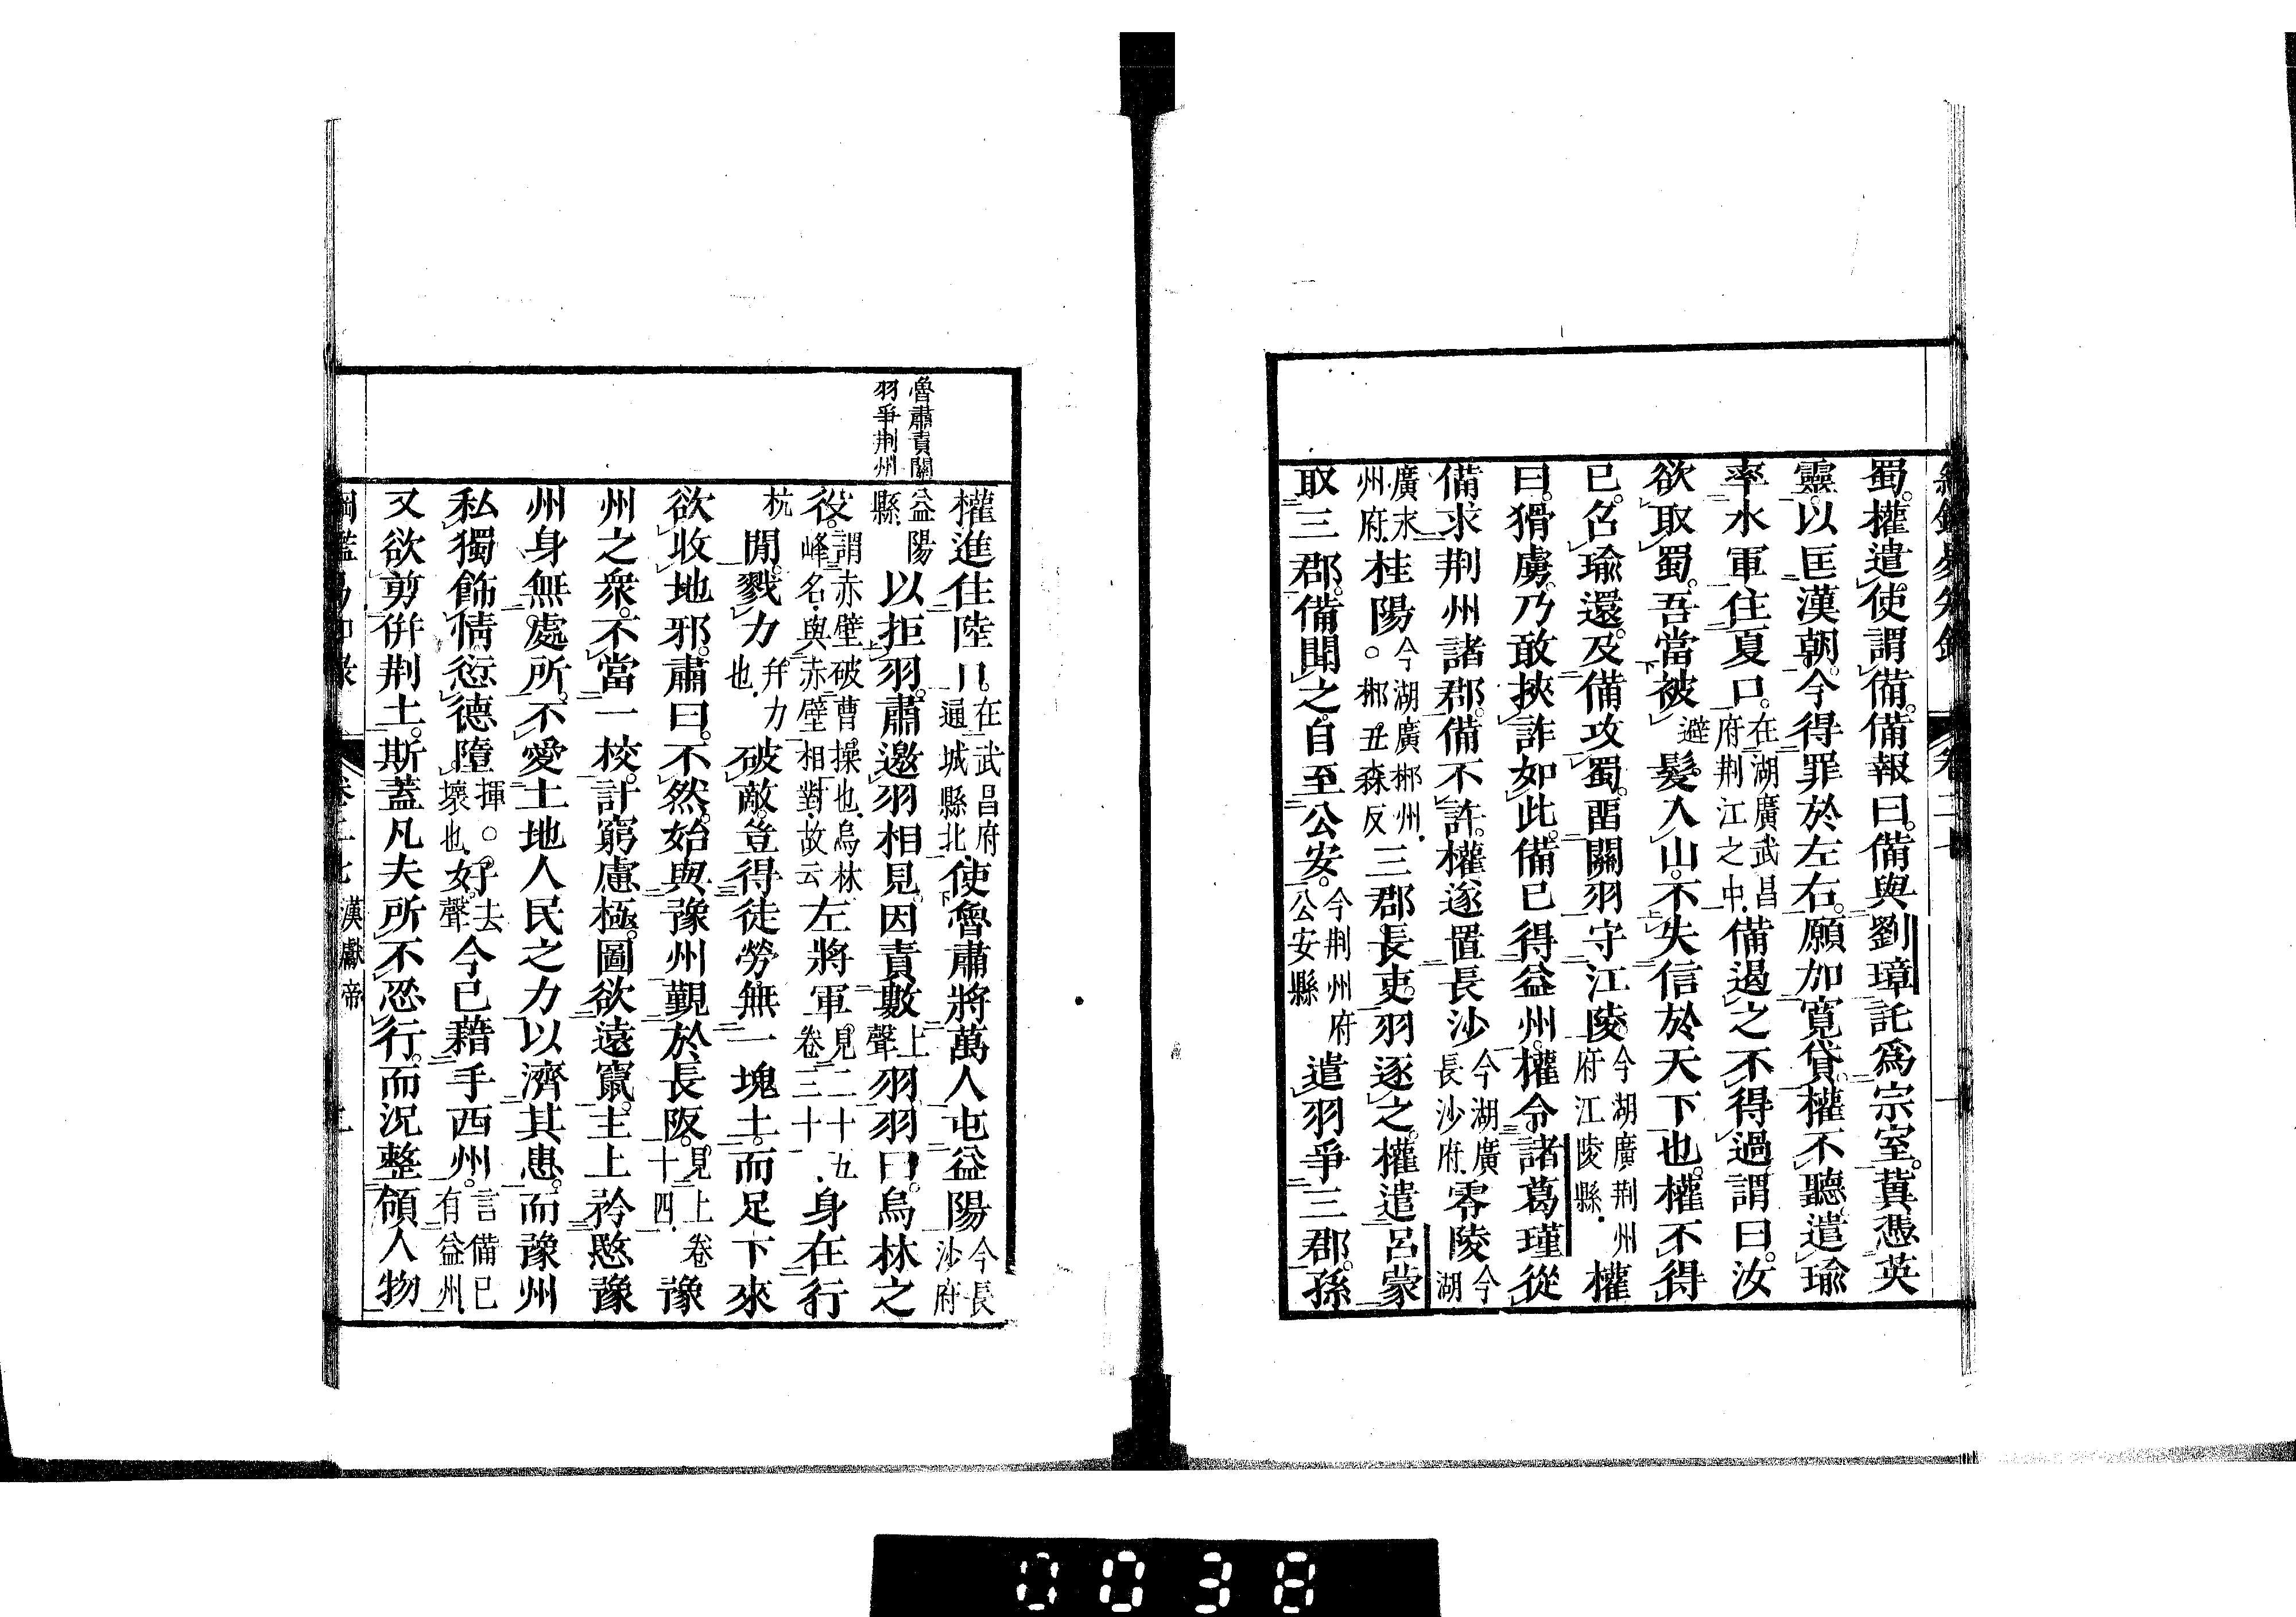 蜀。權遣使謂備。備報曰。備與劉璋託爲宗室。冀憑英
靈。以匡漢朝。今得罪於左右。願加寬貸。權不聽。遣瑜
率水軍住夏口。在湖廣武昌府荆江之中。備遏之不得過。謂曰。汝
欲取蜀。吾當被避髮入山。不失信於天下也。權不得
已。召瑜還。及備攻蜀。畱關羽守江陵今湖廣荆州府江陵縣。權
曰。猾虜。乃敢挾詐如此。備已得益州。權令諸葛瑾從
備求荆州諸郡。備不許。權遂置長沙今湖廣長沙府。零陵今湖
廣永州府。桂陽。今湖廣郴州。郴丑森反三郡長吏。羽逐之。權遣呂蒙
取三郡。備聞之。自至公安。今荆州府公安縣遣羽爭三郡。孫
魯肅責關
羽爭荆州
權進住陸口。在武昌府通城縣北。使魯肅將萬人屯益陽今長沙府
益陽縣。以拒羽。肅邀羽相見。因責數上聲羽。羽曰。烏林之
役。謂赤壁破曹操也。烏林峰名。與赤壁相對。故云左將軍見二十五卷三十一。身在行
杭閒。戮力并力也。破敵。豈得徒勞無一塊土。而足下來
欲收地邪。肅曰。不然。始與豫州覲於長阪。見上卷十四。豫
州之衆。不當一校。計窮慮極。圖欲遠竄。主上矜愍豫
州身無處所。不愛土地人民之力以濟其患。而豫州
私獨飾情。愆德隳。揮。○壞也。好。去聲。今已藉手西州。言備已有益州。
又欲剪倂荆土。斯蓋凡夫所不忍行。而況整領人物
漢獻帝
0038